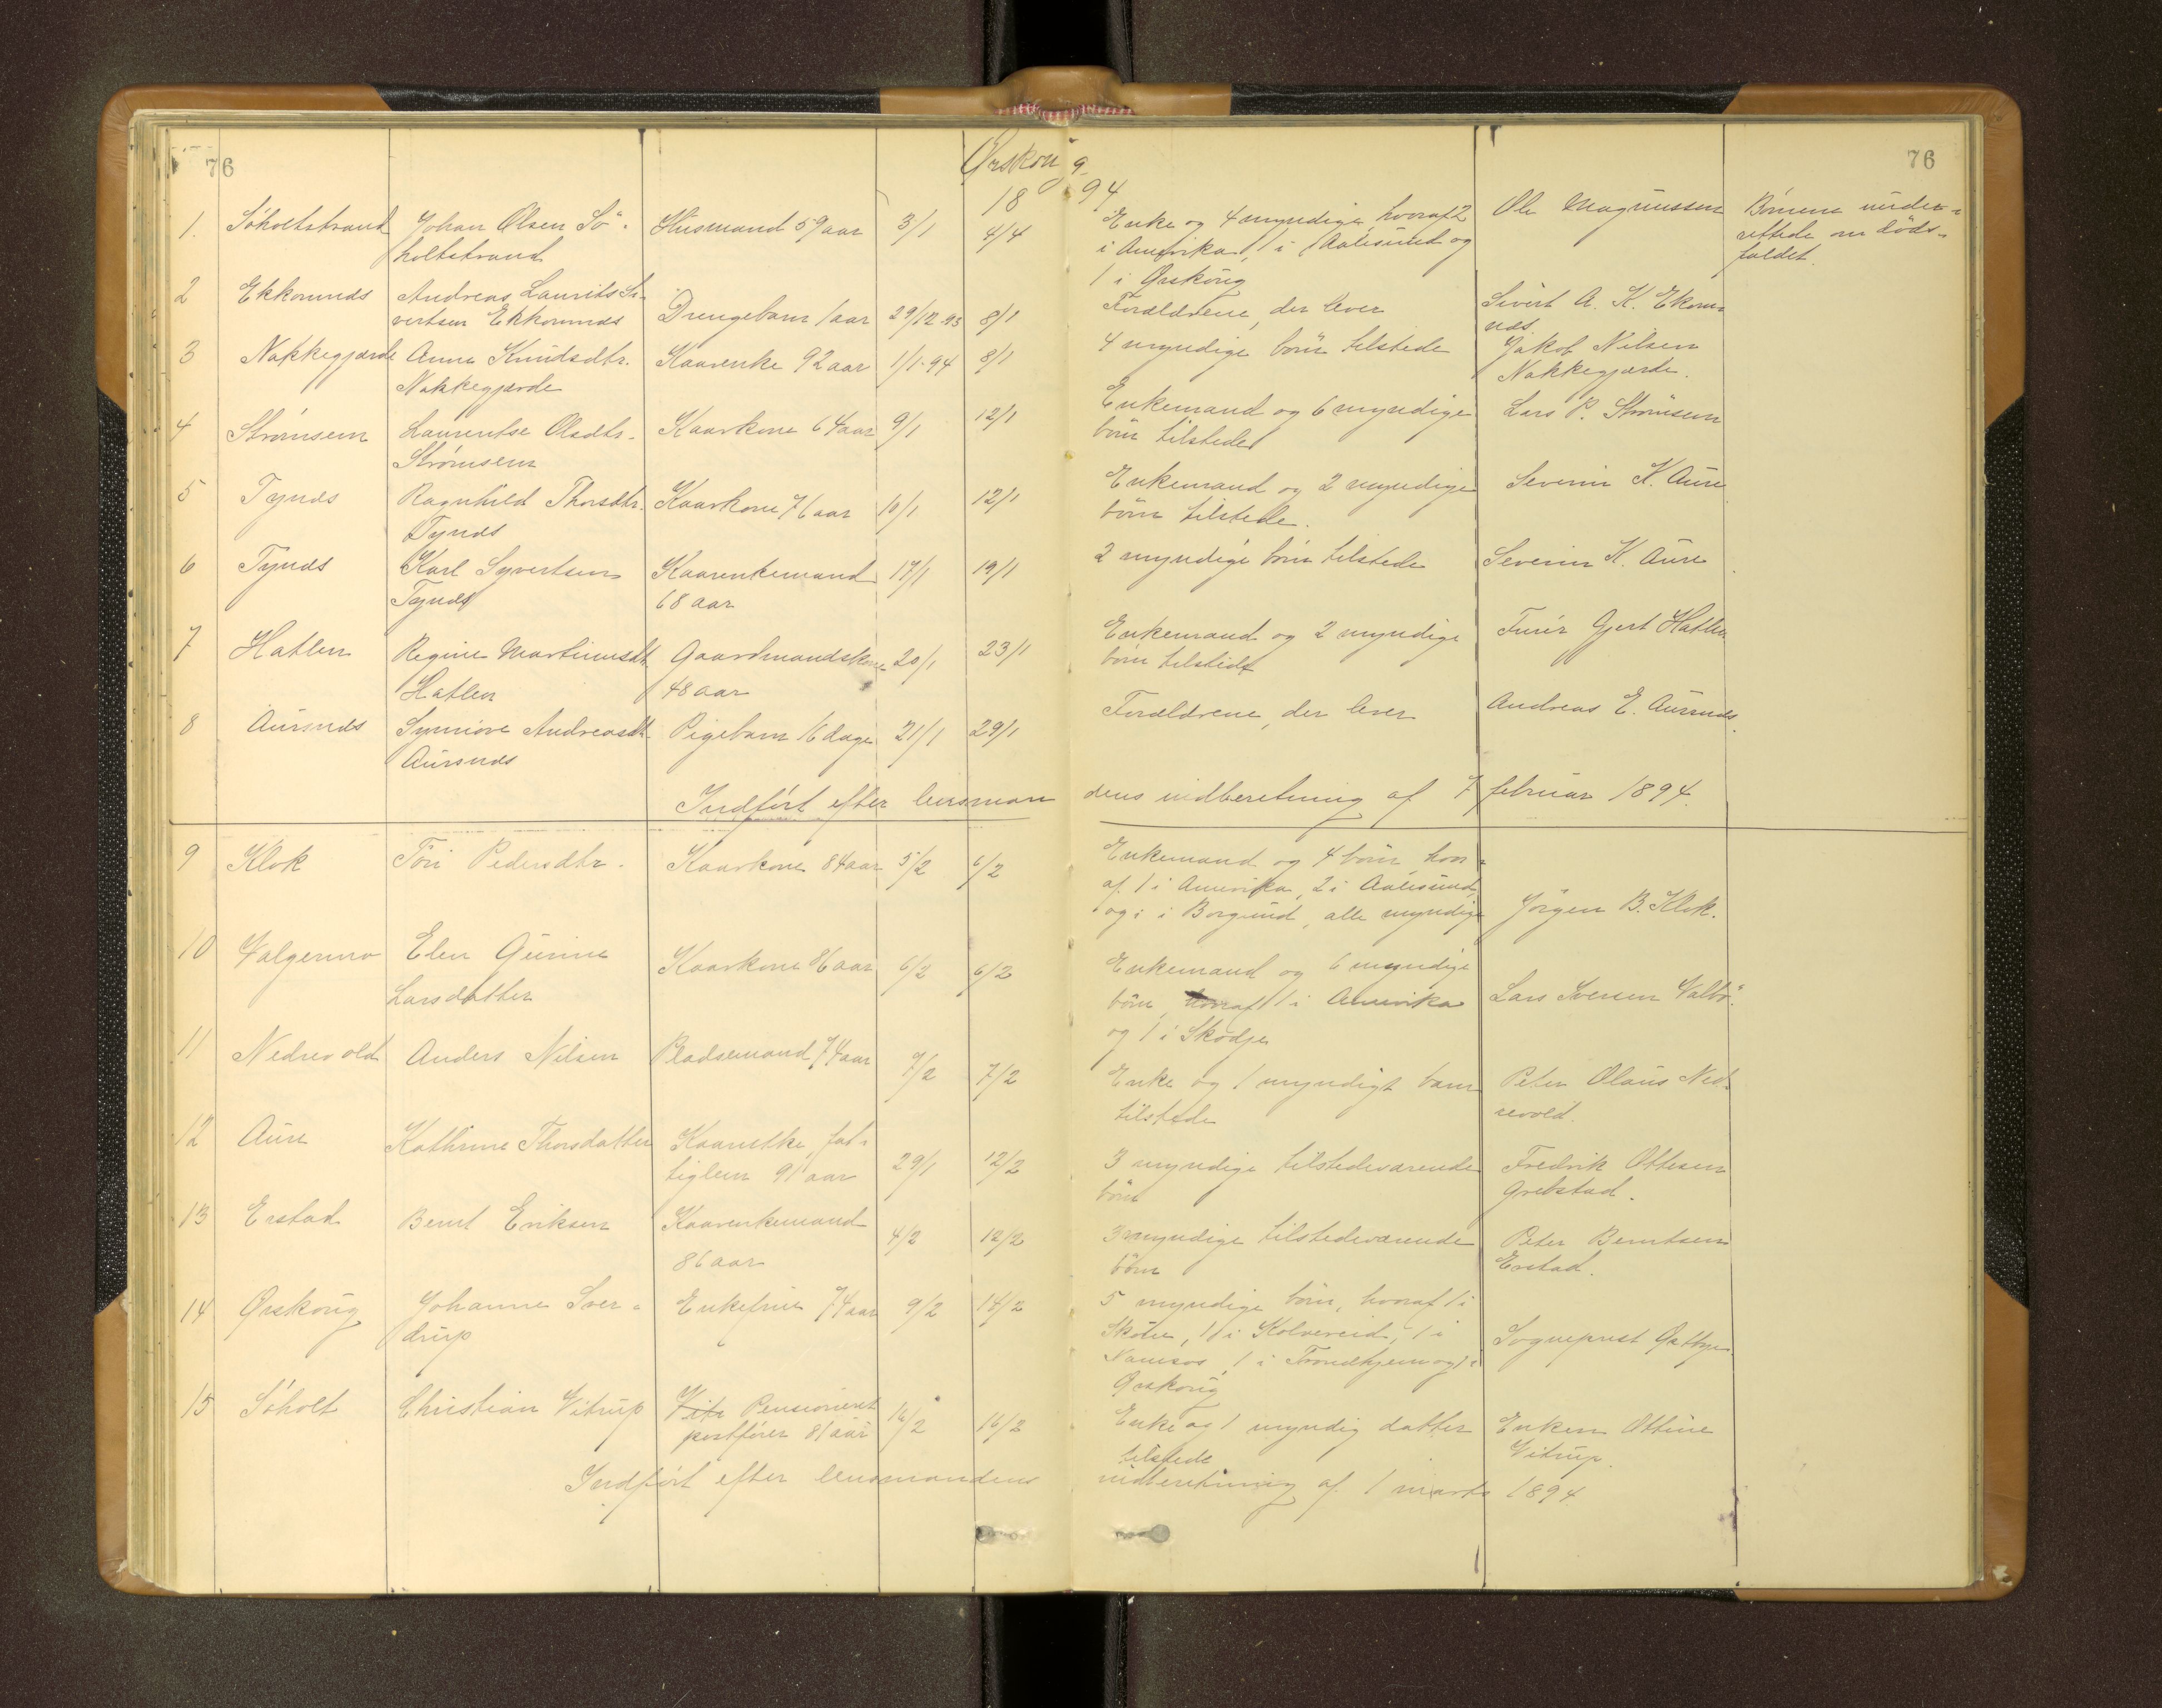 76
Ørskoug
76
18 94
1. Søholtstrand Johan Olsen Sø- Husmand 59 aar 3/1 4/4 Enke og 4 myndige, hvoraf 2 Ole Magnussen Børnene under-
holtstrand i Amerika, 1 i Aalesund og rettede om døds-
1 i Ørskoug faldet.
2 Ekkornnes Andreas Laurits Si- Drengebarn 1 aar 29/12-93 8/1 Forældrene, der lever Sivert A. K. Ekorn-
vertsen Ekkornnes nes.
3 Nakkegjærde Anna Knudsdtr. Kaarenke 92 aar 1/1-94 8/1 4 myndige børn tilstede Jakob Nilsen
Nakkegjærde Nakkegjærde.
4 Strømsem Laurentse Olsdtr. Kaarkone 64 aar 9/1 12/1 Enkemand og 6 myndige Lars P. Strømsem
Strømsem børn tilstede
5 Tynes Ragnhild Thorsdtr. Kaarkone 76 aar 10/1 12/1 Enkemand og 2 myndige Severin K. Aure
Tynes børn tilstede.
6 Tynes Karl Syvertsen Kaarenkemand 17/1 19/1 2 myndige børn tilstede Severin K. Aure
Tynes 68 aar
7 Hatlen Regine Martinusdt. Gaardmandskone 20/1 23/1 Enkemand og 2 myndige Furér Gjert Hatlen
Hatlen 48 aar børn tilstede
8 Aursnes Synnøve Andreasdt. Pigebarn 16 dage 21/1 29/1 Forældrene, der lever Andreas E. Aursnes.
Aursnes
Indført efter lensmandens indberetning af 7 februar 1894.
9 Klok Pedersdtr. Kaarkone 84 aar 5/2 6/2 Enkemand og 4 børn, hvor-
af 1 i Amerika, 2 i Aalesund,
og 1 i Borgund, alle myndige Jørgen B. Klok.
10 Valgermo Elen Gurine Kaarkone 86 aar 6/2 6/2 Enkemand og 6 myndige
Larsdatter børn, hvoraf 1 i Amerika Lars Iversen Valbø.
og 1 i Skodje
11 Nedrevold Anders Nilsen Pladsemand 74 aar 7/2 7/2 Enke og 1 myndigt barn Peter Olaus Ned-
tilstede revold.
12 Aure Kathrine Thorsdatter Kaarenke, fat- 29/1 12/2 3 myndige tilstedeværende Fredrik Ottesen
tiglem 91 aar børn Grebstad.
13 Erstad Bernt Eriksen Kaarenkemand 4/2 12/2 3 myndige tilstedeværende Peter Berntsen
86 aar børn Erstad.
14 Ørskoug Johanne Sver- Enkefrue 74 aar 9/2 14/2 5 myndige børn, hvoraf 1 i
drup 1 i Kolvereid, 1 i Sogneprest
Namsos, 1 i Trondhjem og 1 i
Ørskoug
15 Søholt Christian Vitrup Vitr Pensioneret 16/2 16/2 Enke og 1 myndig datter Enken Ottine
postfører 81 aar tilstede Vitrup.
Indført efter lensmandens indberetning af 1 marts 1894